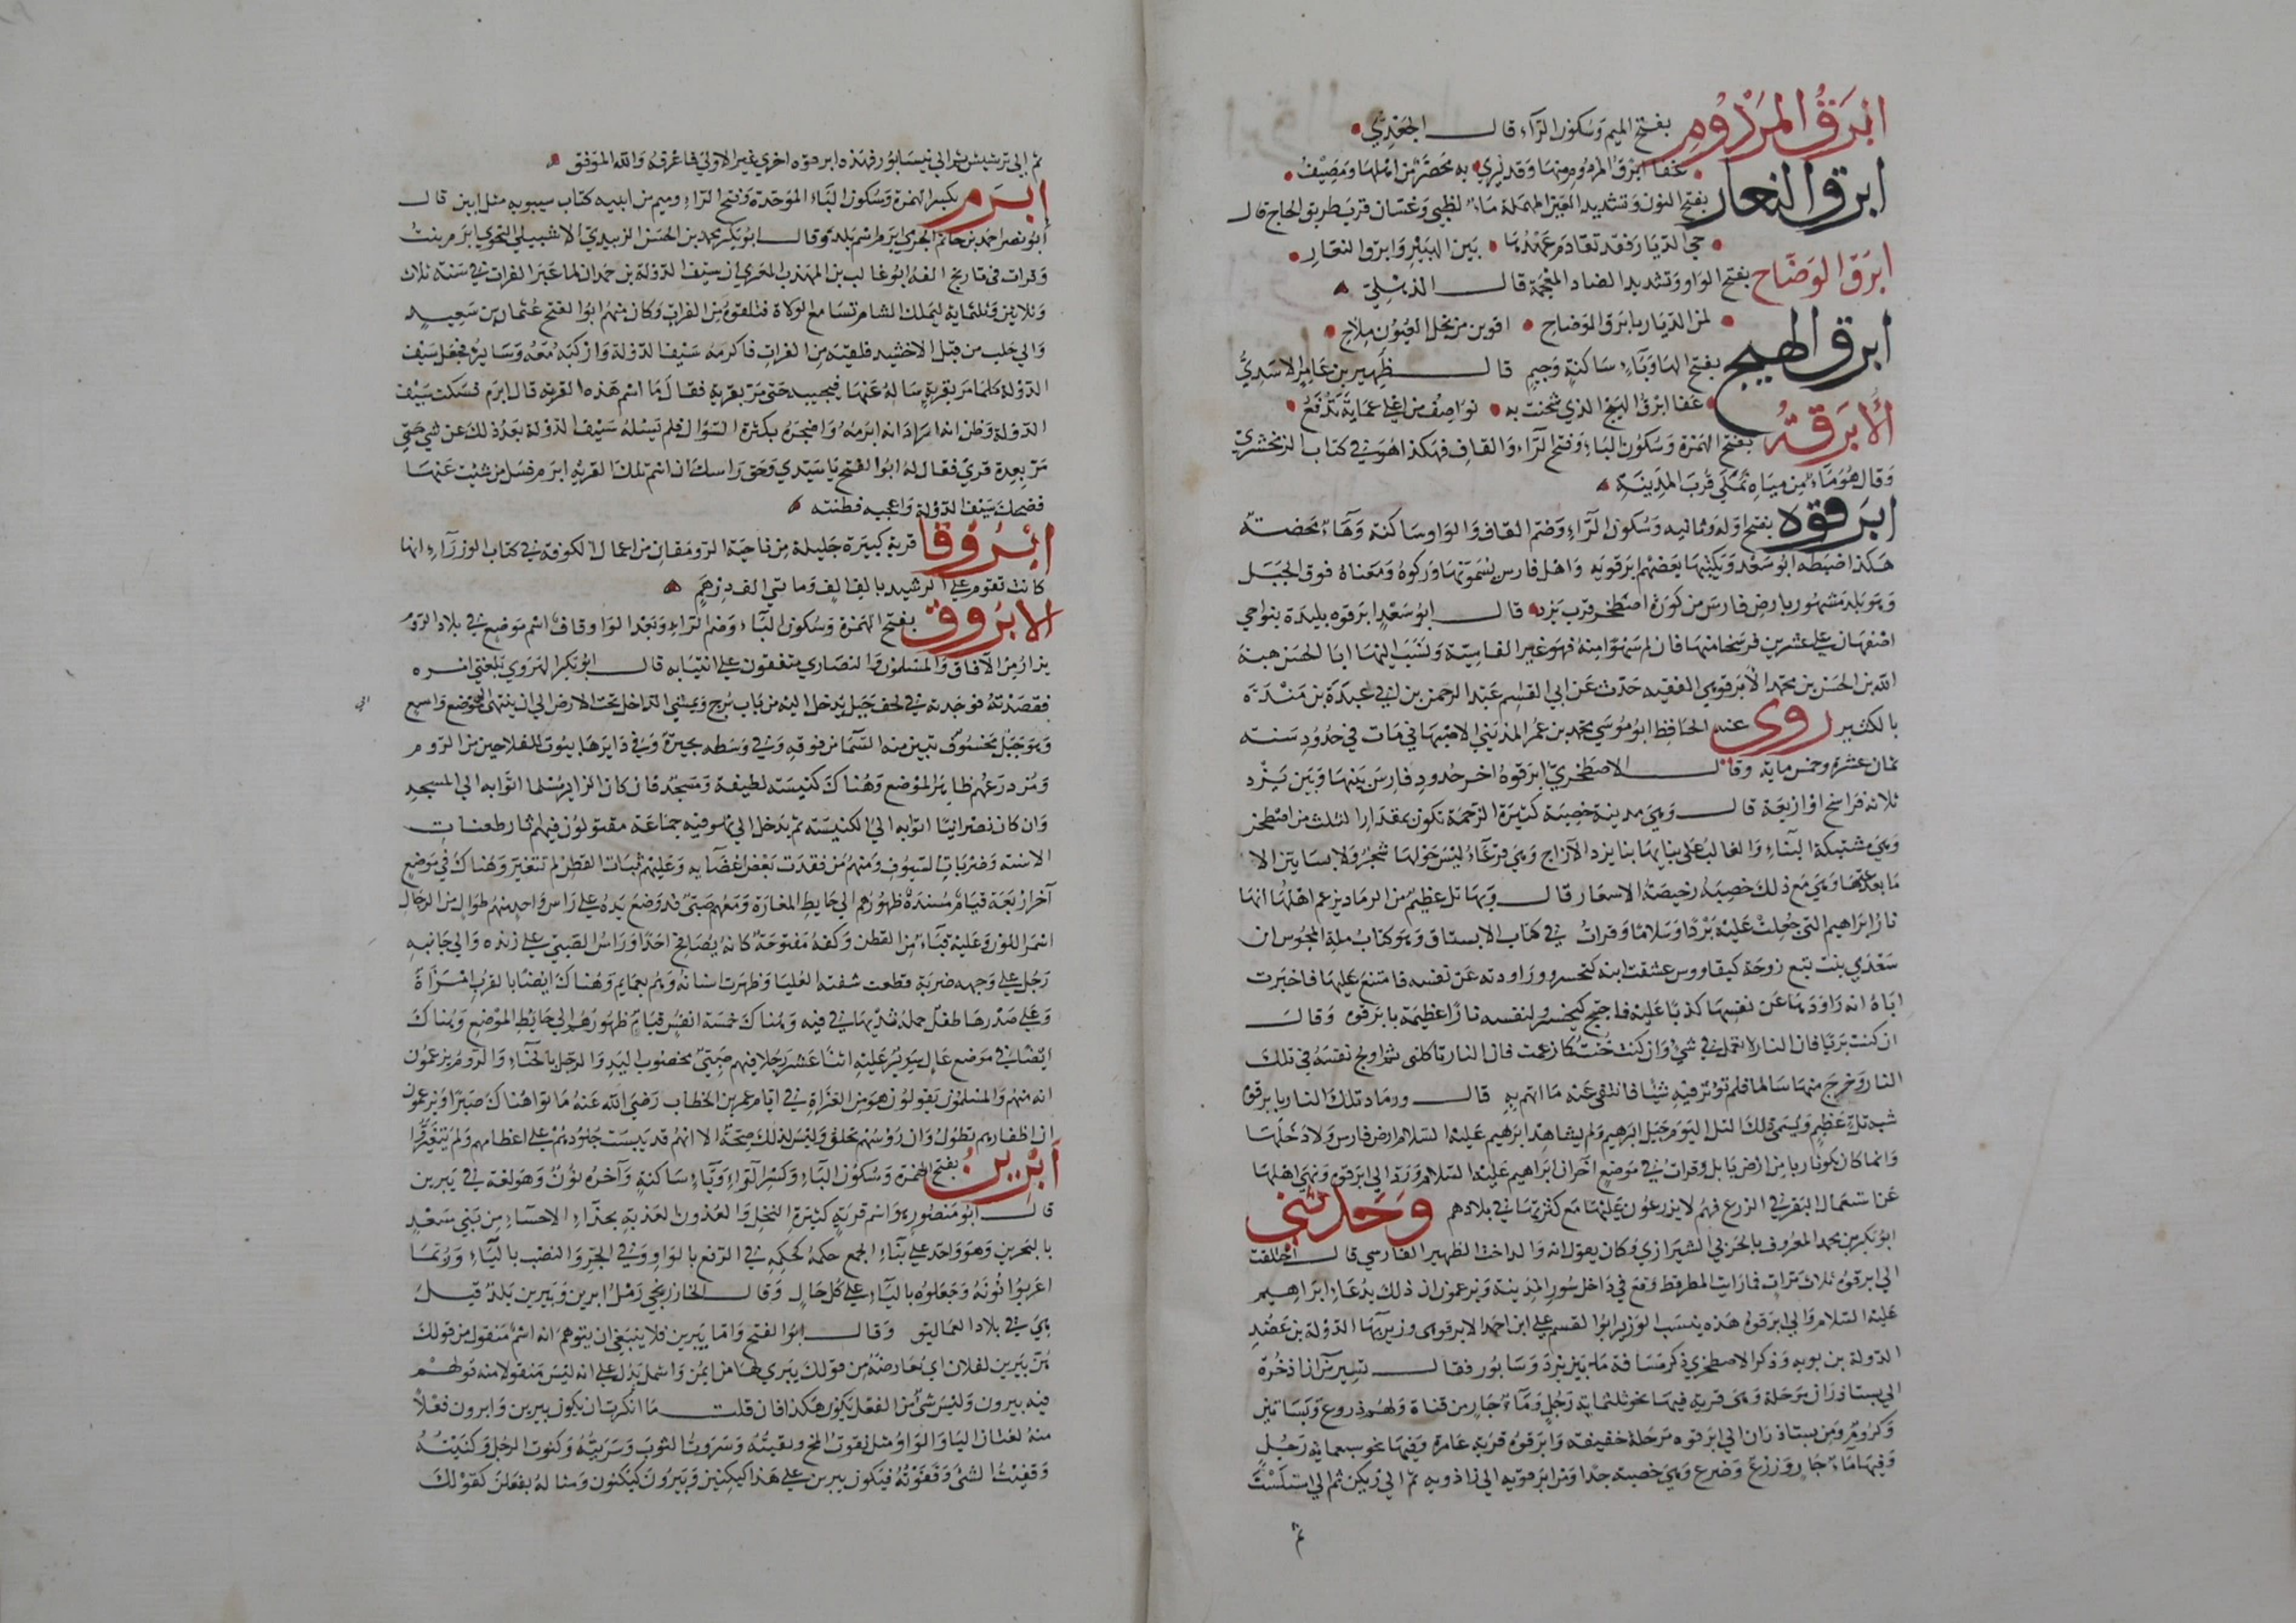 ابرق المردوم بفتح الميم وسكون الراء قال الجعدي
عفا ابرق المردوم منها وقد يري به محضر من اهلها ومصيف
ابرق النعار بفتح النون وتشديد العين المهملة ماء لطيي وغسان قرب طريق الحاج قال
حي الديار فقد تقادم عهدها بين الهبير وابرق النعار
ابرق الوضاح بفتح الواو وتشديد الضاد المعجمة قال الذهلي
لمن الديار بابرق الوضاح اقوين من نجل العيون ملاح
ابرق الهيج بفتح الها وياء ساكنة وجيم قال ظهير بن عامر الاسدي
عفا ابرق الهيج الذي شحنت به نواصف من اعلي عماية تدفع
الأبرقة بفتح الهمزة وسكون الباء وفتح الراء والقاف فهكذا هو في كتاب الزمخشري
وقال هو ماء من مياه نملي قرب المدينة
ابرقوه بفتح اوله وثانيه وسكون الراء وضم القاف والواو ساكنة وهاء محضة
هكذا ضبطه ابو سعد ويكتبها بعضهم ابرقويه واهل فارس يسمونها وركوه ومعناه فوق الجبل
وهو بلد مشهور بارض فارس من كورة اصطخر قرب يزد قال ابو سعد ابرقوه بليدة بنواحي
اصفهان علي عشرين فرسخا منها فان لم يكن سهوا منه فهو غير الفاسية ونسب اليها ابا الحسن هبة
الله بن الحسن بن محمد الابرقوهي الفقيه حدث عن ابي القاسم عبد الرحمن بن ابي عبد الله بن مندة
بالكثير روي عنه الحافظ ابو موسي محمد بن عمر المديني الاصبهاني مات في حدود سنة
ثمان عشرة وخمس ماية وقال الاصطخري ابرقوه اخر حدود فارس بينها وبين يزد
ثلاثة فراسخ او اربعة قال وهي مدينة خصبة كثيرة الزحمة تكون بمقدار الثلث من اصطخر
وهي مشتبكة البناء والغالب علي بنايها بنا يزد الآزاج وهي قرعاء ليس حولها شجر ولا بساتين الا
ما بعد عنها وهي مع ذلك خصيبة رخيصة الاسعار قال وبها تل عظيم من الرماد يزعم اهلها انها
نار ابراهيم التي جعلت عليه بردا وسلاما وقرات في كتاب الابستاق وهو كتاب ملة المجوس ان
سعدي بنت تبع زوجة كيقاووس عشقت ابنه كيخسرو وراودته عن نفسه فامتنع عليها فاخبرت
اباه انه راودها عن نفسها كذبا عليه فاجج كيخسرو لنفسه نارا عظيمة بابرقوه وقال
ان كنت بريا فان النار لا تعمل في شيء وان كنت خنت كما زعمت فان النار تاكلني ثم اولج نفسه في تلك
النار وخرج منها سالما فلم تؤثر فيه شيئا فانتفي عنه ما اتهم به قال ورماد تلك النار بابرقوه
شبه تل عظيم ويسمي ذلك التل اليوم جبل ابرهيم ولم يشاهد ابرهيم عليه السلام ارض فارس ولا دخلها
وانما كان بكوثا ربا من ارض بابل وقرات في موضع آخر ان ابراهيم عليه السلام ورد الي ابرقوه ونهي اهلها
عن استعمال البقر في الزرع فهم لا يزرعون عليها مع كثرتها في بلادهم وحدثني
ابو بكر بن محمد المعروف بالحربي الشيرازي وكان يقول انه والد اخت الظهير الفارسي قال اختلفت
الي ابرقوه ثلاث مرات فما رايت المطر قط وقع في داخل سور المدينة ويزعمون ان ذلك بدعاء ابراهيم
عليه السلام والي ابرقوه هذه ينسب الوزير ابو القسم علي ابن احمد الابرقوهي وزير بهاء الدولة بن عضد
الدولة بن بويه وذكر الاصطخري ذكر مسافة ما بين يزد وسابور فقال تسير من ازاذخرة
الي بستاذران مرحلة وهي قرية فيها نحو ثلثماية رجل وماء جار من قناة ولهم زروع وبساتين
وكروم ومن بستاذران الي ابرقوه مرحلة خفيفة وابرقوه قرية عامرة وفيها نحو سبعماية رجل
وفيها ماء جار وزرع وضرع وهي خصبة جدا ومن ابرقويه الي زاذويه ثم الي زيكن ثم الي استلست
ثم
ثم الي ترشيش ثم الي نيسابور فهذه ابرقوه اخري غير الاولي فاعرفه والله الموفق
ابرم بكسر الهمزة وسكون الباء الموحدة وفتح الراء وميم من ابنيه كتاب سيبويه مثل ابين قال
ابو نصر احمد بن حاتم الجرمي ابرم اسم بلد وقال ابو بكر محمد بن الحسن الزبيدي الاشبيلي النحوي ابرم نبت
وقرات في تاريخ الفه ابو غالب بن المهذب المعري ان سيف الدولة بن حمدان لما عبر الفرات في سنة ثلاث
وثلاثين وثلثماية ليملك الشام تسامع الولاة فتلقوه من الفرات وكان منهم ابو الفتح عثمان بن سعيد
والي حلب من قبل الاخشيد فلقيه من الفرات فاكرمه سيف الدولة واركبه معه وسايره فجعل سيف
الدولة كلما مر بقرية ساله عنها فيجيبه حتي مر بقرية فقال ما اسم هذه القرية قال ابرم فسكت سيف
الدولة وظن انه اراد انه ابرمه واضجره بكثرة السؤال فلم يسله سيف الدولة بعد ذلك عن شي حتي
مر بعدة قري فقال له ابو الفتح يا سيدي وحق راسك ان اسم تلك القرية ابرم فسل من شئت عنها
فضحك سيف الدولة واعجبه فطنته
ابروقا قرية كبيرة جليلة من ناحية الرومقان من اعمال الكوفة في كتاب الوزراء انها
كانت تقوم علي الرشيد بالف الف وماتي الف درهم
الابروق بفتح الهمزة وسكون الباء وضم الراء وبعد الواو قاف اسم موضع في بلاد الروم
يزار من الآفاق والمسلمون والنصاري متفقون علي انتيابه قال ابو بكر الهروي بلغني امره
فقصدته فوجدته في لحف جبل يدخل اليه من باب برج ويمشي الداخل تحت الارض الي ان ينتهي الي موضع واسع
وهو جبل مخسوف تبين منه السماء من فوقه وفي وسطه بحيرة وفي دايرها بيوت للفلاحين من الروم
ومزدرعهم ظاهر الموضع وهناك كنيسة لطيفة ومسجد فان كان الزاير مسلما اتوا به الي المسجد
وان كان نصرانيا اتوا به الي الكنيسة ثم يدخل الي بهو فيه جماعة مقتولون فيهم آثار طعنات
الاسنة وضربات السيوف ومنهم من فقدت بعض اعضايه وعليهم ثياب القطن لم تتغير وهناك في موضع
آخر اربعة قيام مسندة ظهورهم الي حايط المغارة ومعهم صبي قد وضع يده علي راس واحد منهم طوال من الرجال
اسمر اللون وعليه قباء من القطن وكفه مفتوحة كانه يصافح احدا وراس الصبي علي زنده والي جانبه
رجل علي وجهه ضربة قطعت شفته العليا وظهرت اسنانه وهم بعمايم وهناك ايضا بالقرب امراة
وعلي صدرها طفل حملة ثديها في فيه وهناك خمسة انفس قيام ظهورهم الي حايط الموضع وهناك
ايضا في موضع عال سرير عليه اثنا عشر رجلا فيهم صبي مخضوب اليد والرجل بالحناء والروم يزعمون
انه منهم والمسلمون يقولون هو من الغزاة في ايام عمر بن الخطاب رضي الله عنه ماتوا هناك صبرا ويزعمون
ان اظفارهم تطول وان رؤسهم تحلق وليس لذلك صحة الا انهم قد يبست جلودهم علي اعظامهم ولم يتغيروا
أبرين بفتح الهمزة وسكون الباء وكسر الراء وياء ساكنة وآخره نون وهو لغة في يبرين
قال ابو منصور هو اسم قرية كثيرة النخل والعيون العذبة بحذاء الاحساء من بني سعد
بالبحرين وهو واحد علي بناء الجمع حكمه كحكمه في الرفع بالواو وفي الجر والنصب بالياء وربما
اعربوا نونه وجعلوه بالياء علي كل حال وقال الخارزنجي رمل ابرين ويبرين بلد قيل
هي في بلاد العماليق وقال ابو الفتح واما يبرين فلا ينبغي ان يتوهم انه اسم منقول من قولك
هن يبرين لفلان اي يعارضنه من قولك يبري لها من ايمن واشمل يدل علي انه ليس منقولا منه قولهم
فيه يبرون وليس شيء من الفعل يكون هكذا فان قلت ما انكرت ان يكون يبرين وابرون فعلا
منه لغتان اليا والواو مثل نقوت المخ ونقيته وسروت الثوب وسريته وكنوت الرجل وكنيته
وقفيت الشيء وقفوته فيكون يبرين علي هذا كيكنين ويبرون كيكنون ومثاله يفعلن كقولك